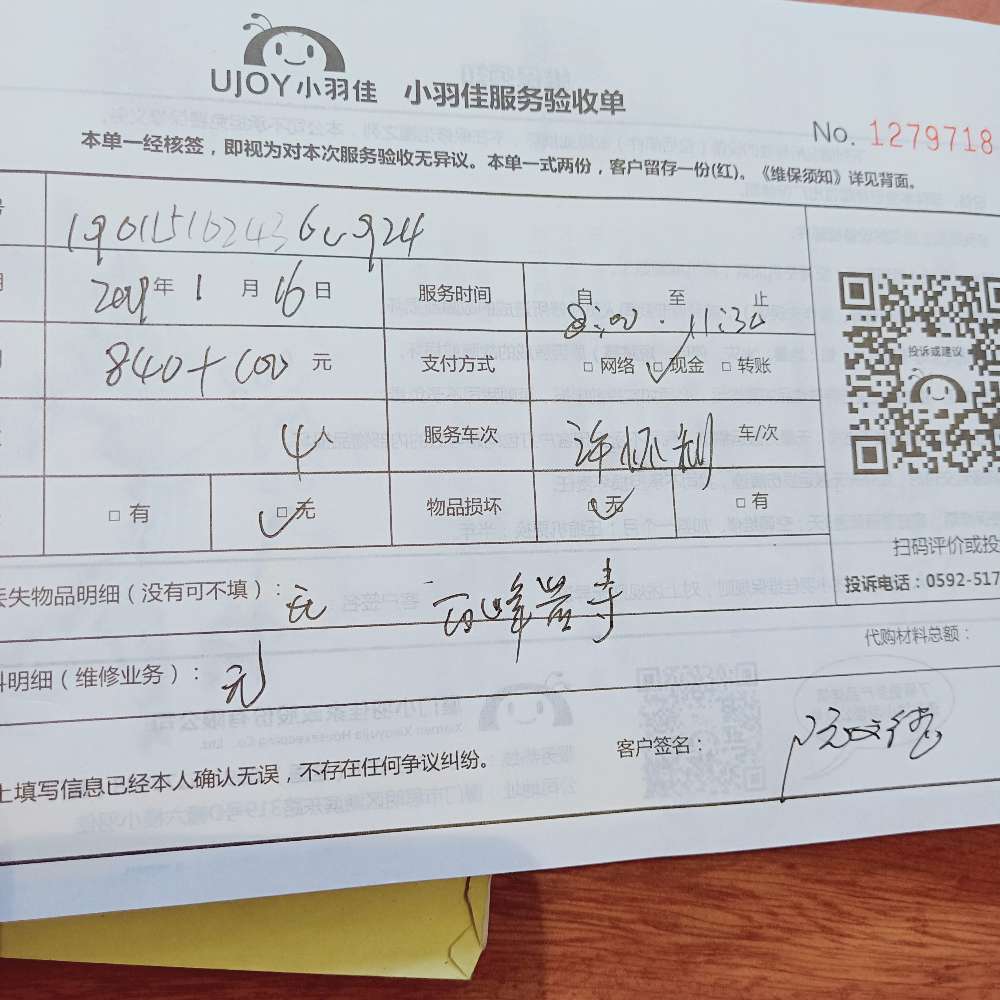 UJOY小羽佳 小羽佳服务验收单
No. 1279718
本单一经核签，即视为对本次服务验收无异议。本单一式两份，客户留存一份(红)。《维保须知》详见背面。
2019年 1 月 16 日 服务时间 自 至 止
8:00 - 11:30
840+100 元 支付方式 □ 网络 □ 现金 □ 转账
4 人 服务车次 车/次
□ 有 □ 无 物品损坏 □ 无 □ 有
投诉或建议
扫码评价或投
投诉电话：0592-517
丢失物品明细（没有可不填）：无
代购材料总额：
料明细（维修业务）：无
客户签名：
上填写信息已经本人确认无误，不存在任何争议纠纷。